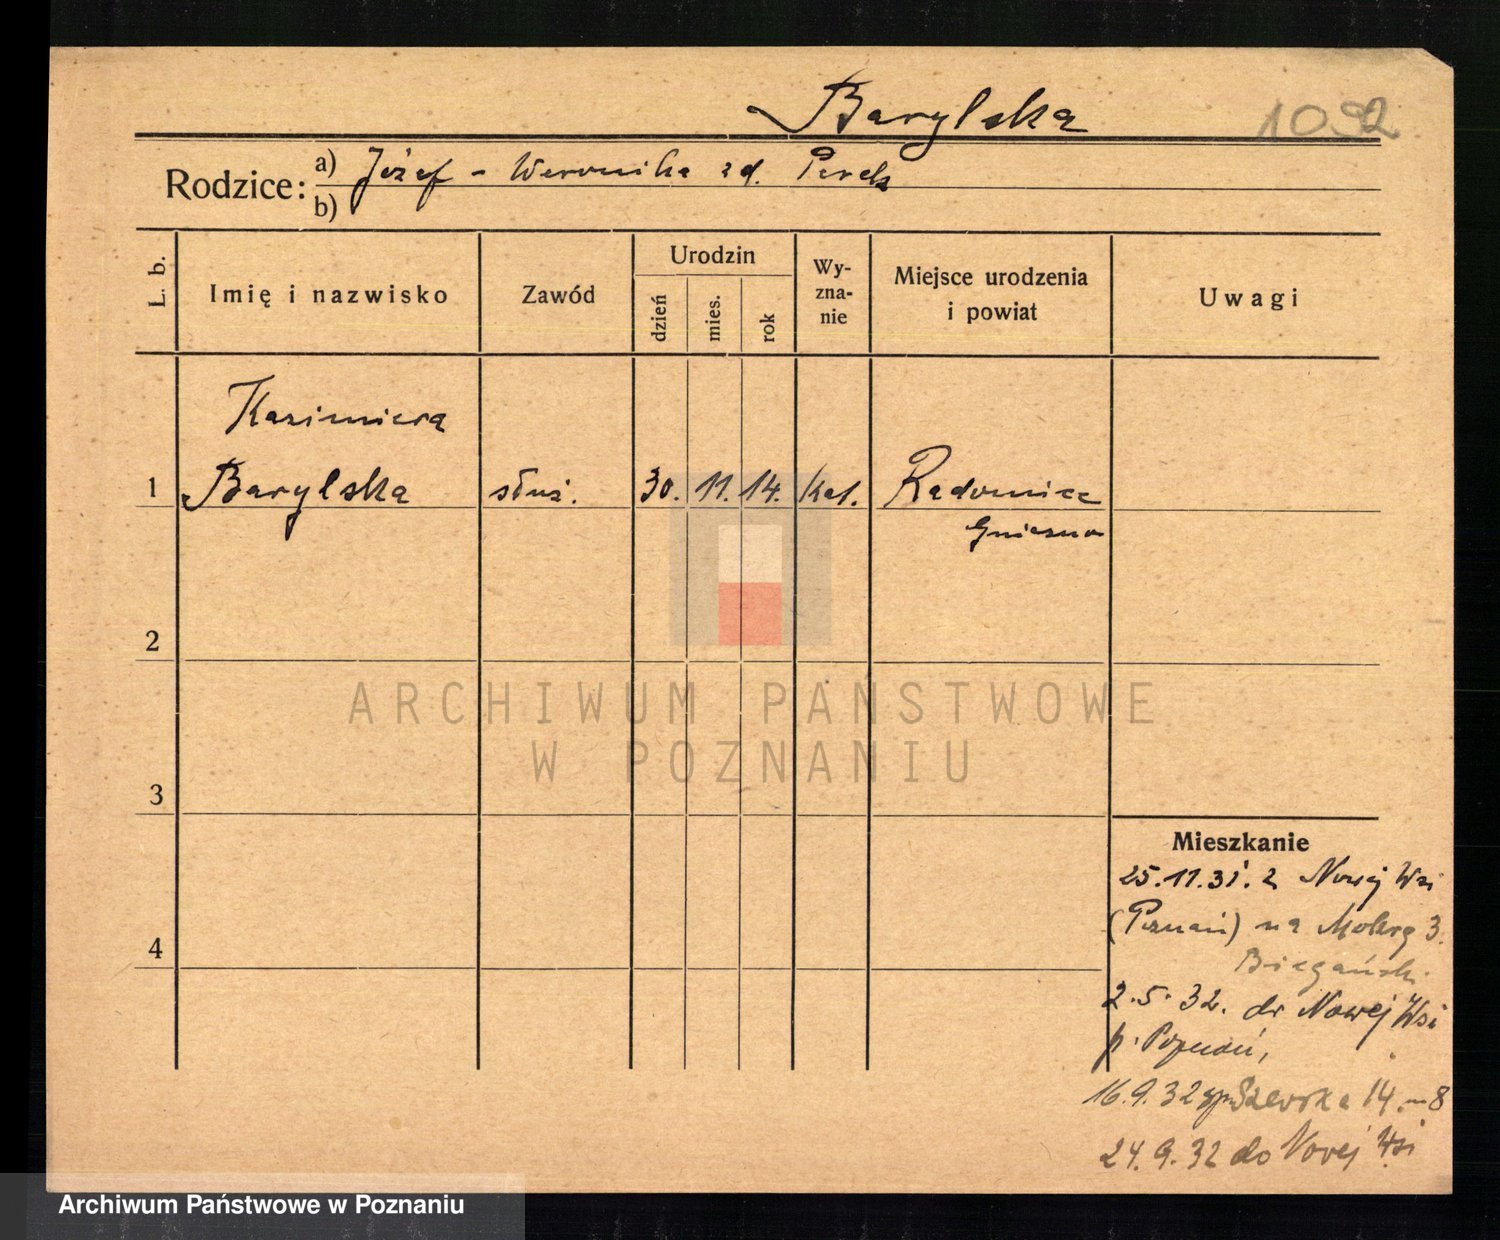 Barylska 1092
Rodzice: a) Józef - Weronika zd. Perek
b)
L. b.
Imię i nazwisko
Zawód
Urodzin
dzień
mies.
rok
Wy-
zna-
nie
Miejsce urodzenia
i powiat
Uwagi
Kazimiera
1 Barylska służ. 30. 11. 14. kat. Radomice
Gniezno
2
3
4
ARCHIWUM PAŃSTWOWE
W POZNANIU
Mieszkanie
25.11.31. z Nowej Wsi
(Poznań) na Mokrą 3.
Biegańsk.
2.5.32. do Nowej Wsi
p. Poznań,
16.9.32 Szewska 14 m 8
24.9.32 do Nowej Wsi
Archiwum Państwowe w Poznaniu